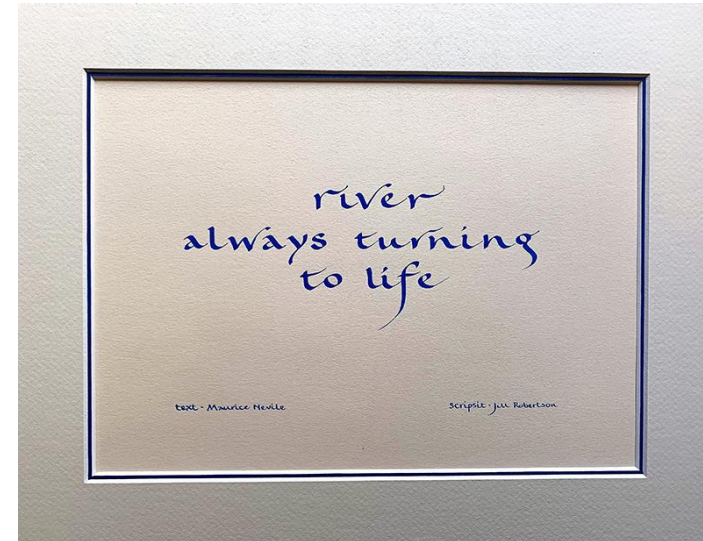 river
always turning
to life
text - Maurice Nevile
scripsit - Jill Robertson